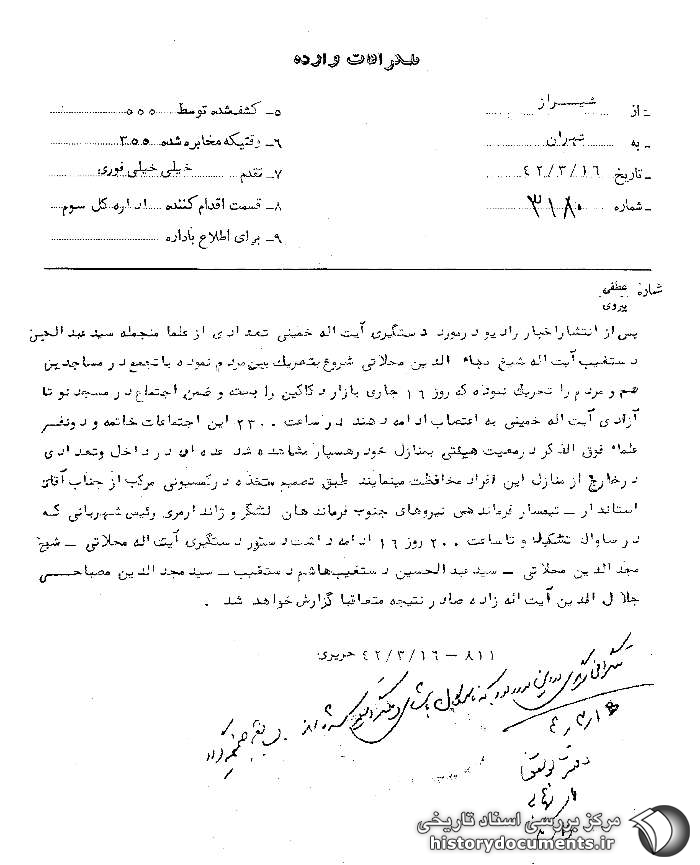 تلگرافات وارده
از شیراز
به تهران
تاریخ ۴۲/۳/۱۶
شماره ۳۱۸۰
۵ـ کشف شده توسط ۵۵۵
۶ـ وقتیکه مخابره شده ۳۵۵
۷ـ تقدم خیلی خیلی فوری
۸ـ قسمت اقدام کننده اداره کل سوم
۹ـ برای اطلاع باداره
شماره عطفی
پیروی
پس از انتشار اخبار رادیو در مورد دستگیری آیت اله خمینی تعدادی از علما منجمله سید عبدالحین
دستغیب آیت اله شیخ الدین محلاتی شروع بتحریک بین مردم نموده با تجمع در مساجدین
هم و مردم را تحریک نموده که روز ۱۶ جاری بازار دکاکین را بست و ضمن اجتماع در مسجد نو تا
آزادی آیت اله خمینی به اعتصاب ادامه دهند در ساعت ۲۳۰۰ این اجتماعات خاتمه و دونفر
علماء فوق الذکر در معیت هیئتی بمنازل خود رهسپار مشاهده شد عده ای در داخل وتعدادی
در خارج از منازل این افراد محافظت مینمایند طبق تصمیم متخذه در کمسیونی مرکب از جناب آقای
استاندار ـ تیمسار فرماندهی نیروهای جنوب فرماندهان لشگر و ژاندارمری رئیس شهربانی که
در ساواک تشکیل و تا ساعت ۲۰۰ روز ۱۶ ادامه داشت دستور دستگیری آیت اله محلاتی ـ شیخ
مجد الدین محلاتی ـ سید عبد الحسین دستغیب هاشم دستغیب ـ سید مجد الدین مصباحی
جلال الدین آیت اله زاده صادر نتیجه متعاقبا گزارش خواهد شد .
۸۱۱ ـ ۴۲/۳/۱۶ حریری
مرکز بررسی اسناد تاریخی
historydocuments.ir